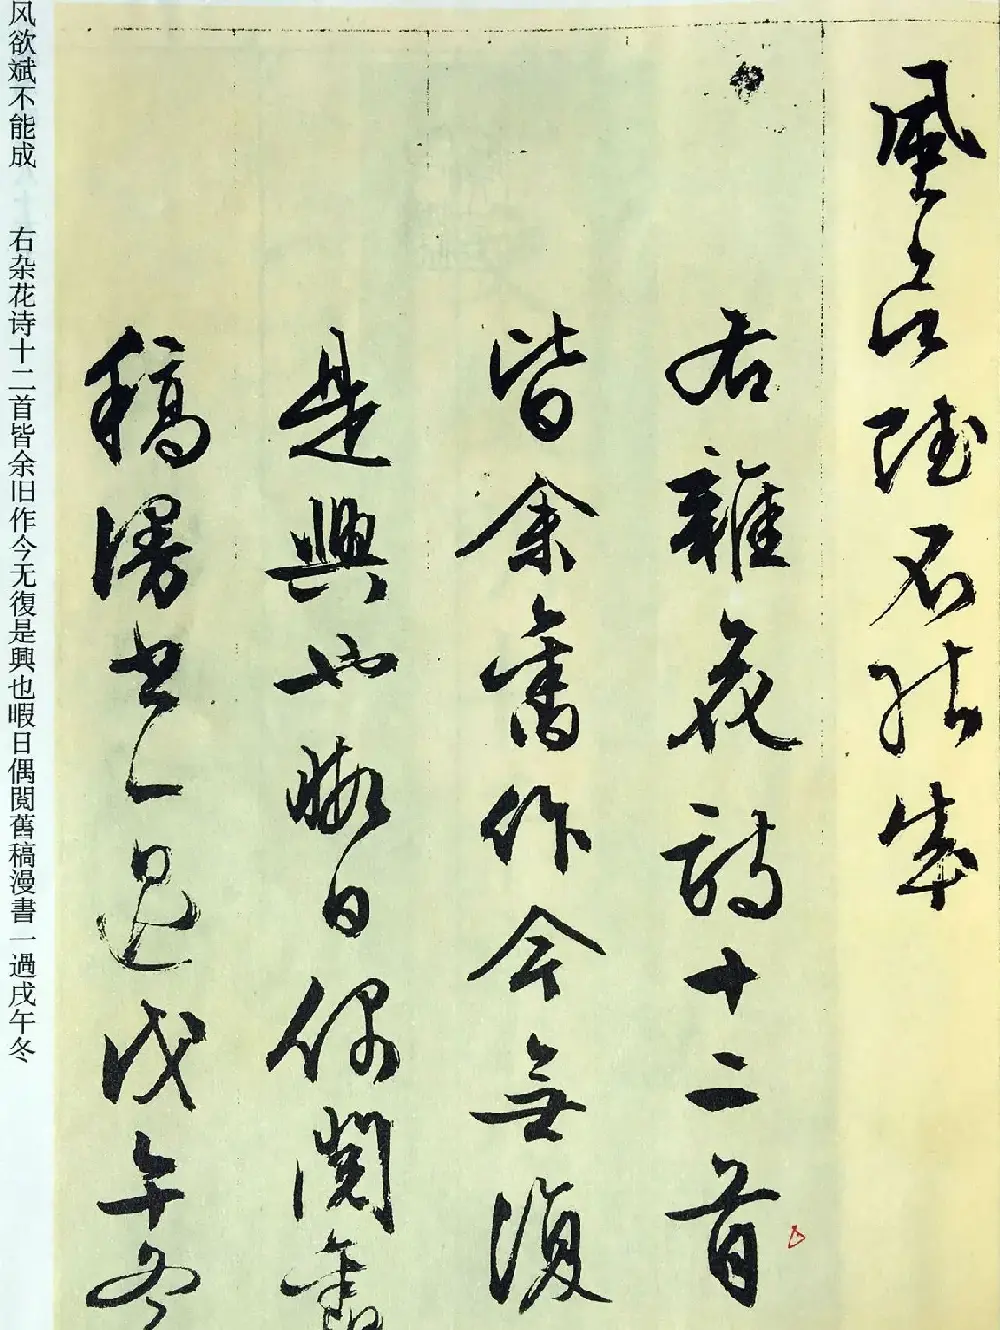 風欲賦不能成
右雜花詩十二首
皆余舊作今無復
是興也暇日偶閱舊
稿漫書一過戊午冬
风欲斌不能成　右杂花诗十二首皆余旧作今无復是興也暇日偶閲舊稿漫書一過戌午冬